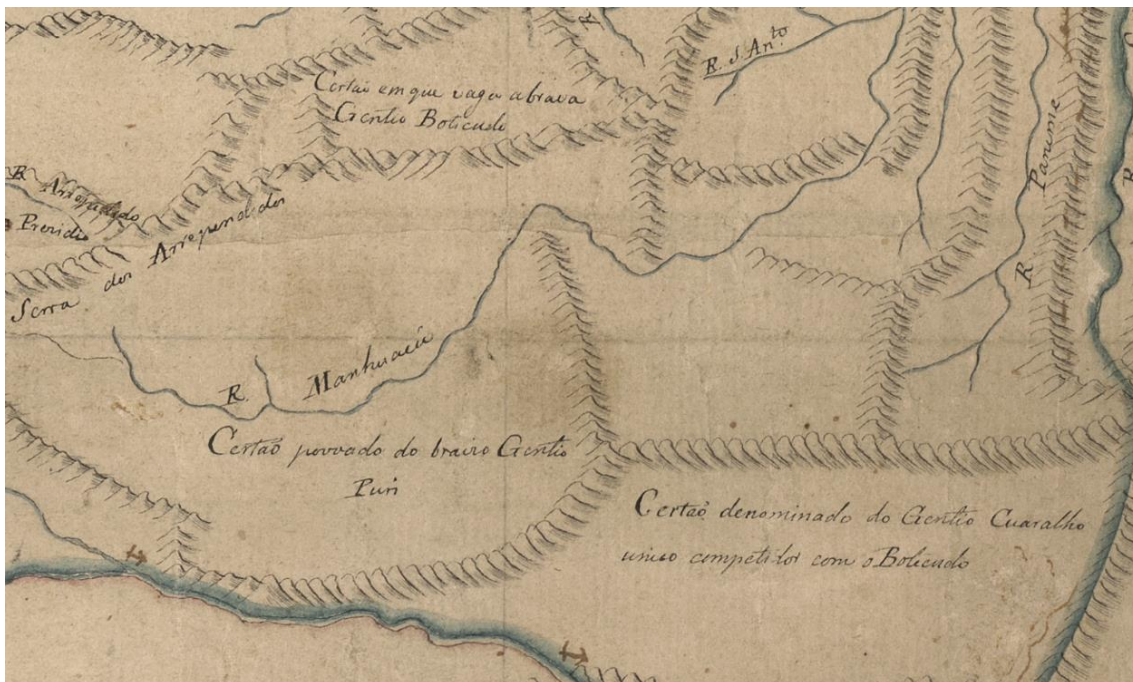 R
R. S. Ant.to
Certaõ em que vaga abrava
Gentio Boticudo
R. Arrependido
Prezidio
Serra dos Arrependidos
R. Paneme
R
R. Manhuacû
Certaõ povoado do bravo Gentio
Puri
Certaõ denominado do Gentio Cuaralho
unico competidor com o Boticudo